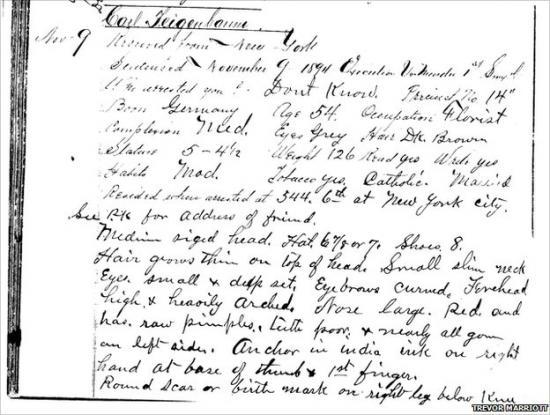 Carl Feigenbaum.
Nov 9 Received from New York
Sentenced November 9 1894 Execution Murder 1st
Who arrested you? Dont Know. Precinct No 14"
Born Germany Age 54. Occupation Florist
Complexion Med. Eyes Grey Hair Dk. Brown
Stature 5-4½ Weight 126 Read yes Write yes
Habits Mod. Tobacco yes. Catholic.
Resided when arrested at 544. 6th at New York city.
See BK for address of friend.
Medium sized head. Hat. 6 7/8 or 7. Shoes. 8.
Hair grows thin on top of head. Small slim neck
Eyes. small & deep set. Eyebrows curved. Forehead
high. & heavily Arched. Nose large. Red. and
has. raw pimples. teeth poor. & nearly all gone
on left side. Anchor in india ink on right
hand at base of thumb & 1st finger.
Round scar or birth mark on right leg below Knee
TREVOR MARRIOTT